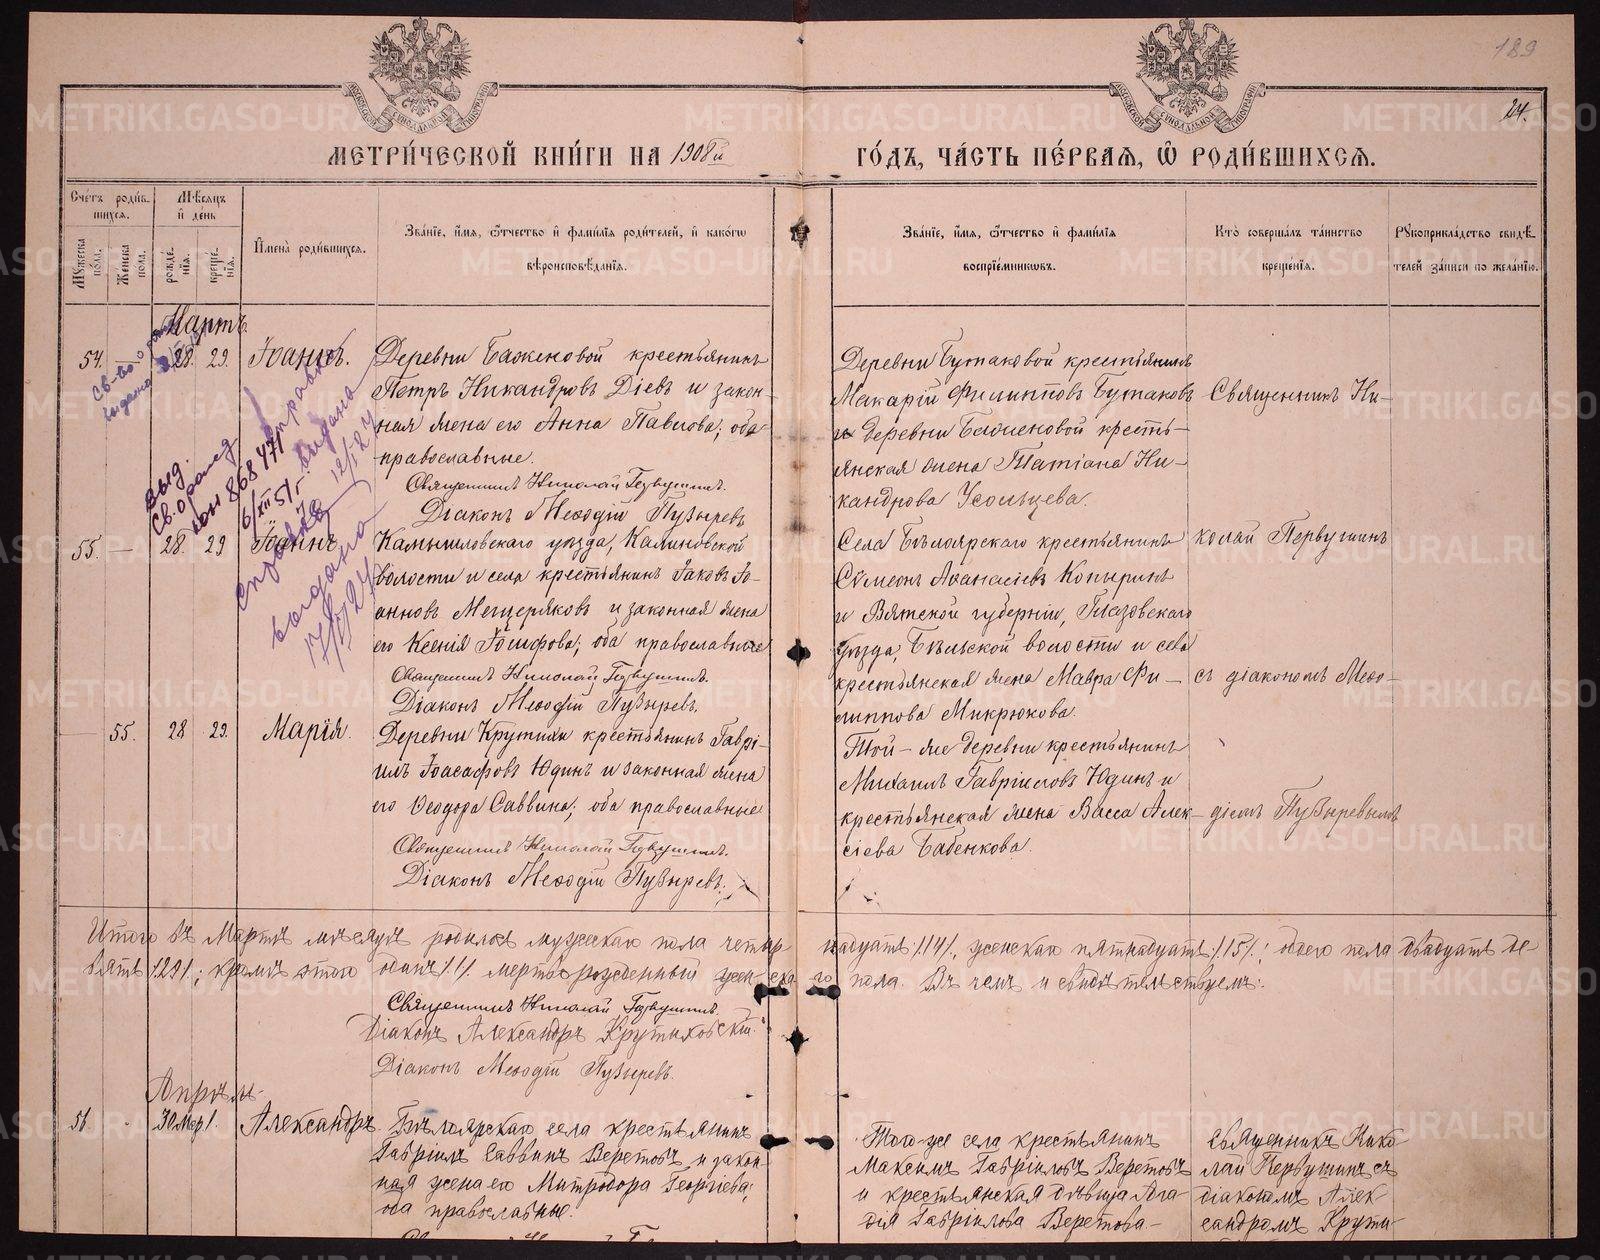 189
24.
МЕТРИ́ЧЕСКОЙ КНИ́ГИ НА 1908й
ГО́ДЪ, ЧА́СТЬ ПЕ́РВАЯ, Ѡ РОДИ́ВШИХСЯ.
Сче́тъ роди́в-
шихся.
Мѣ́сяцъ
и҆ де́нь
Мꙋ́жеска по́ла.
Же́нска по́ла.
рожде́-
нїя.
креще́-
нїя.
И҆мена̀ роди́вшихся.
Зва́нїе, и҆́мя, ѻ҆́тчество и҆ фамі́лїя роди́телей, и҆ како́гѡ
вѣроисповѣ́данїя.
Зва́нїе, и҆́мя, ѻ҆́тчество и҆ фамі́лїя
воспрїе́мниковъ.
Кто̀ соверша́лъ та́инство
креще́нїя.
Рꙋкоприкла́дство свидѣ́-
телей за́писи по жела́нїю.
Мартъ
54. 28. 29. Іоаннъ.
Деревни Баженовой крестьянинъ
Петръ Никандровъ Діевъ и закон-
ная жена его Анна Павлова; оба
православные.
Священникъ Николай Первушинъ.
Діаконъ Меѳодій Пузыревъ
Деревни Бутаковой крестьянинъ
Макарій Филипповъ Бутаковъ
и деревни Баженовой кресть-
янская жена Татіана Ни-
кандрова Усольцева.
Священникъ Ни-
выд.
Св. о рожд
868477
6/XII 51 г.
справка
выдана
12/I 27
справка
выдана
55. — 28. 29 Іоаннъ
Камышловскаго уѣзда, Калиновской
волости и села крестьянинъ Іаковъ Іо-
анновъ Мещеряковъ и законная жена
его Ксенія Іосифова; оба православные
Священникъ Николай Первушинъ.
Діаконъ Меѳодій Пузыревъ.
Села Бѣлоярскаго крестьянинъ
Сѵмеонъ Аѳанасіевъ Копыринъ
и Вятской губерніи, Глазовскаго
уѣзда, Бѣльской волости и села
крестьянская жена Мавра Фи-
липпова Микрюкова.
колай Первушинъ
съ діакономъ Меѳо-
— 55. 28 29. Марія.
Деревни Крутихи крестьянинъ Гаврі-
илъ Іоасафовъ Юдинъ и законная жена
его Ѳеодора Саввина; оба православные
Священникъ Николай Первушинъ.
Діаконъ Меѳодій Пузыревъ.
Той-же деревни крестьянинъ
Михаилъ Гавріиловъ Юдинъ и
крестьянская жена Васса Алек-
сіева Бабенкова.
діемъ Пузыревымъ
Итого въ Мартѣ мѣсяцѣ родилось мужскаго пола четыр надцать /14/, женскаго пятнадцать /15/; обоего пола двадцать де-
вять /29/; кромѣ этого одинъ /1/ мертворожденный женска го пола. Въ чемъ и свидѣтельствуемъ:
Священникъ Николай Первушинъ.
Діаконъ Александръ Крутиховскій.
Діаконъ Меѳодій Пузыревъ.
Апрѣль
56. 30 Мар 1. Александръ.
Бѣлоярскаго села крестьянинъ
Гавріилъ Саввинъ Веретовъ и закон-
ная жена его Митродора Георгіева;
оба православные.
Того же села крестьянинъ
Максимъ Гавріиловъ Веретовъ
и крестьянская дѣвица Ага-
ѳія Гавріилова Веретова-
Священникъ Нико
лай Первушинъ съ
діакономъ Алек-
сандромъ Крути-
METRIKI.GASO-URAL.RU